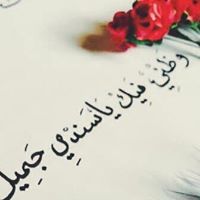 وَظَنِّيْ فِيكَ يَا سَنَدِيْ جَمِيلٌ